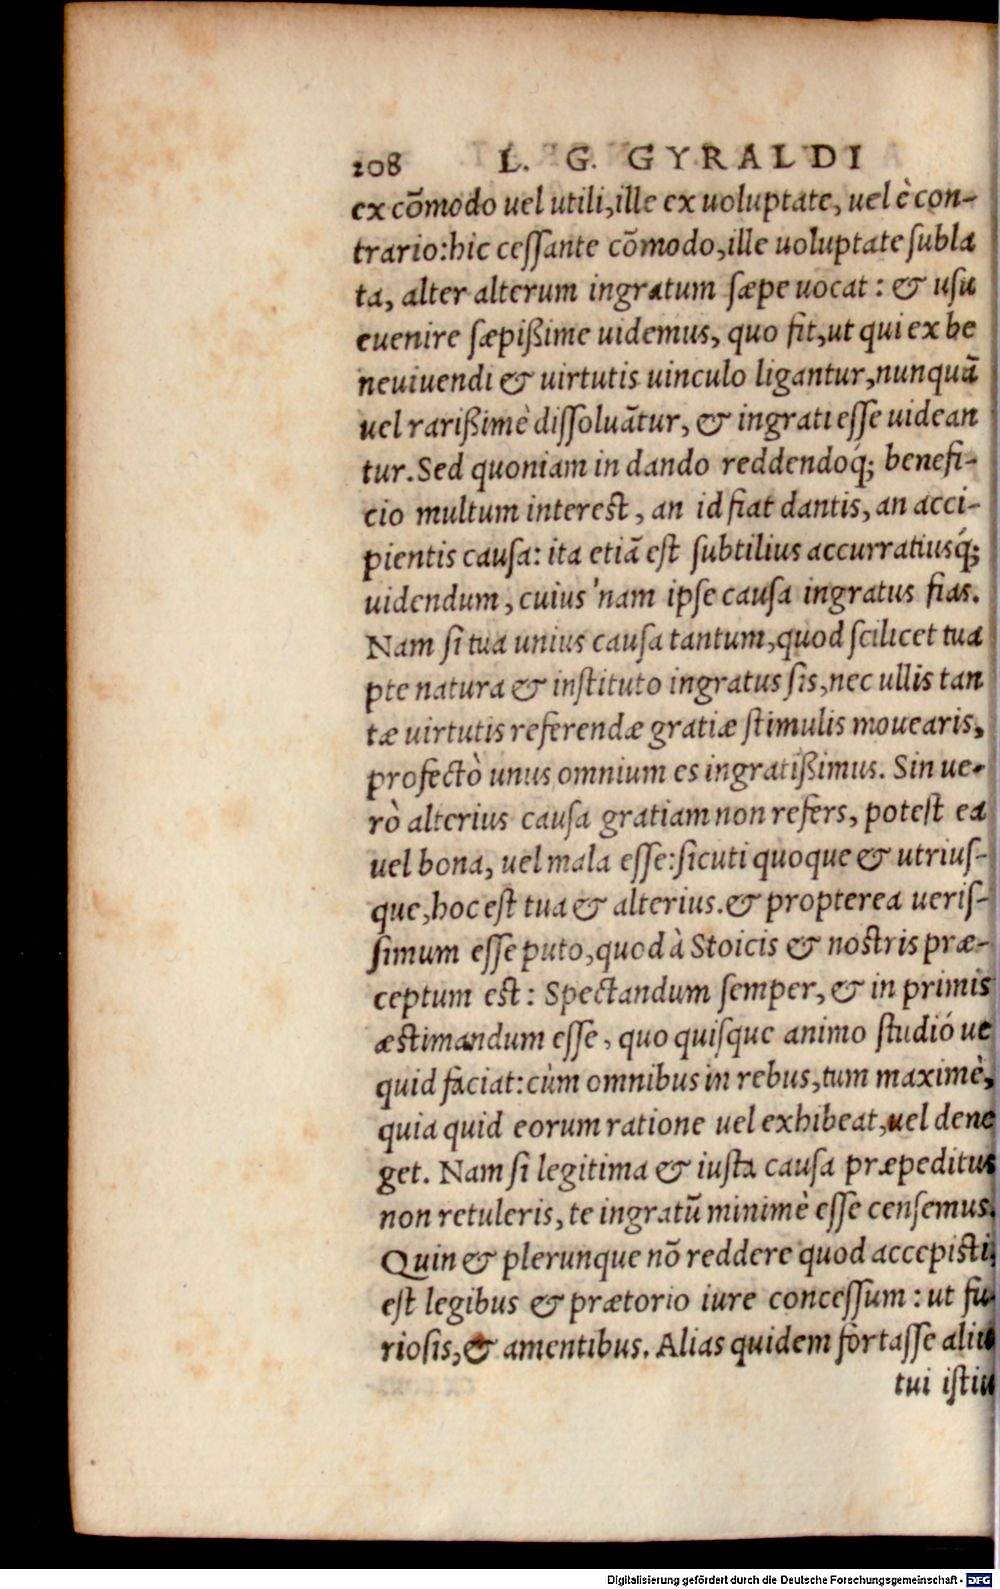 208 L. G. GYRALDI
ex cõmodo uel utili, ille ex uoluptate, uel è con-
trario: hic cessante cõmodo, ille uoluptate subla
ta, alter alterum ingratum sæpe uocat: & usu
euenire sæpißime uidemus, quo fit, ut qui ex be
neuiuendi & uirtutis uinculo ligantur, nunquã
uel rarißimè dissoluãtur, & ingrati esse uidean
tur. Sed quoniam in dando reddendoq́; benefi-
cio multum interest, an id fiat dantis, an acci-
pientis causa: ita etiã est subtilius accurratiusq́;
uidendum, cuius'nam ipse causa ingratus fias.
Nam si tua unius causa tantum, quod scilicet tua
pte natura & instituto ingratus sis, nec ullis tan
tæ uirtutis referendæ gratiæ stimulis mouearis,
profectò unus omnium es ingratißimus. Sin ue-
rò alterius causa gratiam non refers, potest ea
uel bona, uel mala esse: sicuti quoque & utrius-
que, hoc est tua & alterius. & propterea ueris-
simum esse puto, quod à Stoicis & nostris præ-
ceptum est: Spectandum semper, & in primis
æstimandum esse, quo quisque animo studió ue
quid faciat: cùm omnibus in rebus, tum maximè,
quia quid eorum ratione uel exhibeat, uel dene
get. Nam si legitima & iusta causa præpeditus
non retuleris, te ingratũ minimè esse censemus.
Quin & plerunque nõ reddere quod accepisti,
est legibus & prætorio iure concessum: ut fu-
riosis, & amentibus. Alias quidem fortasse
tui
Digitalisierung gefördert durch die Deutsche Forschungsgemeinschaft - DFG